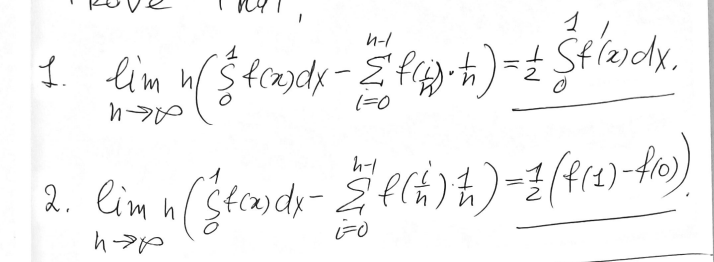 Prove that,
1. lim n→∞ n(∫₀¹ f(x)dx - Σᵢ₌₀ⁿ⁻¹ f(i/n)·1/n) = 1/2 ∫₀¹ f'(x)dx.
2. lim n→∞ n(∫₀¹ f(x)dx - Σᵢ₌₀ⁿ⁻¹ f(i/n)·1/n) = 1/2 (f(1)-f(0)).